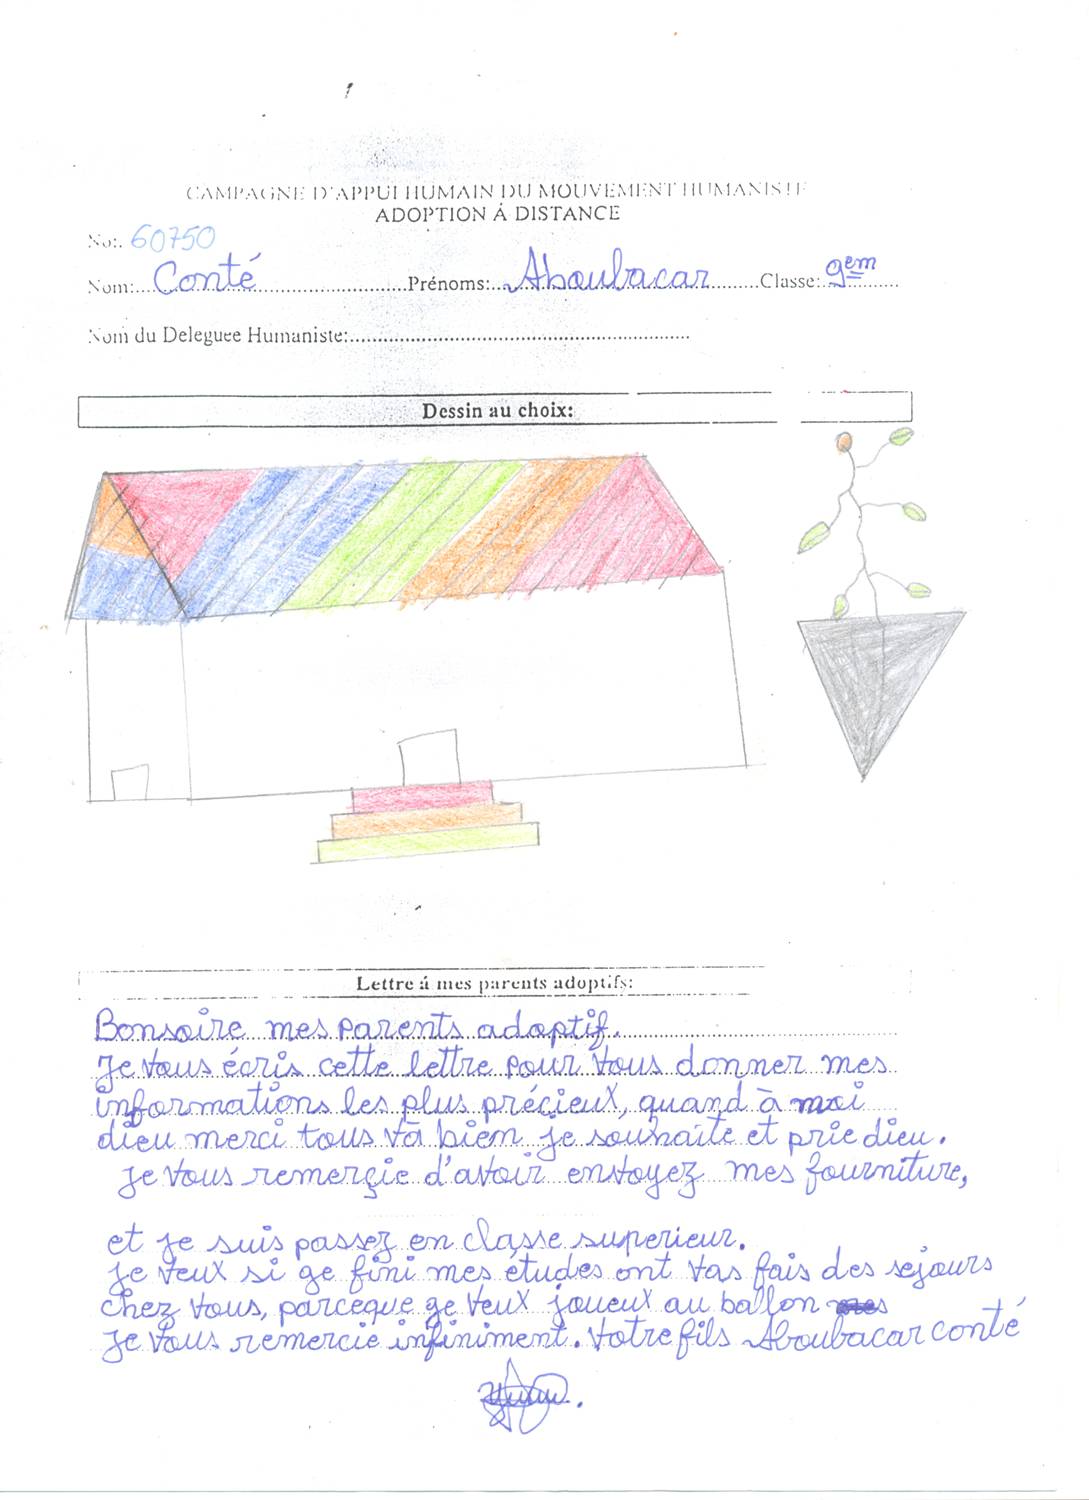 CAMPAGNE D'APPUI HUMAIN DU MOUVEMENT HUMANISTE
ADOPTION Á DISTANCE
No:. 60750
Nom:...Conté...Prénoms:...Aboubacar...Classe:.9em...
Nom du Deleguee Humaniste:...
Dessin au choix:
Lettre á mes parents adoptifs:
Bonsoire mes parents adoptif.
Je vous écris cette lettre pour vous donner mes
informations les plus précieux, quand à moi
dieu merci tous và biem je souhaite et prie dieu.
Je vous remerçie d'avoir envoyez mes fourniture,
et je suis passez en classe superieur.
Je veux si ge fini mes études ont vas fais des sejours
chez vous, parceque ge veux joueux au ballon
Je vous remercie infiniment. Votre fils Aboubacar conté